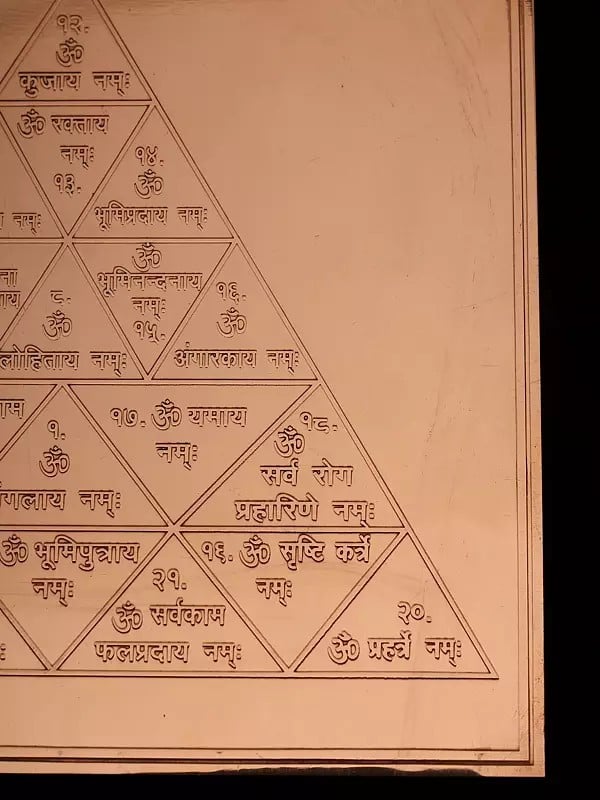 १२.
ॐ
कुजाय नम्ः
ॐ रक्ताय
नम्ः
१३.
१४.
ॐ
भूमिप्रदाय नम्ः
नम्ः
ॐ
भूमिनन्दनाय
नम्ः
१५.
८.
ॐ
लोहिताय नम्ः
१६.
ॐ
अंगारकाय नम्ः
१७. ॐ यमाय
नम्ः
१.
ॐ
ंगलाय नम्ः
१८.
ॐ
सर्व रोग
प्रहारिणे नम्ः
ॐ भूमिपुत्राय
नम्ः
१९. ॐ सृष्टि कर्त्रे
नम्ः
२१.
ॐ सर्वकाम
फलप्रदाय नम्ः
२०.
ॐ प्रहर्त्रे नम्ः